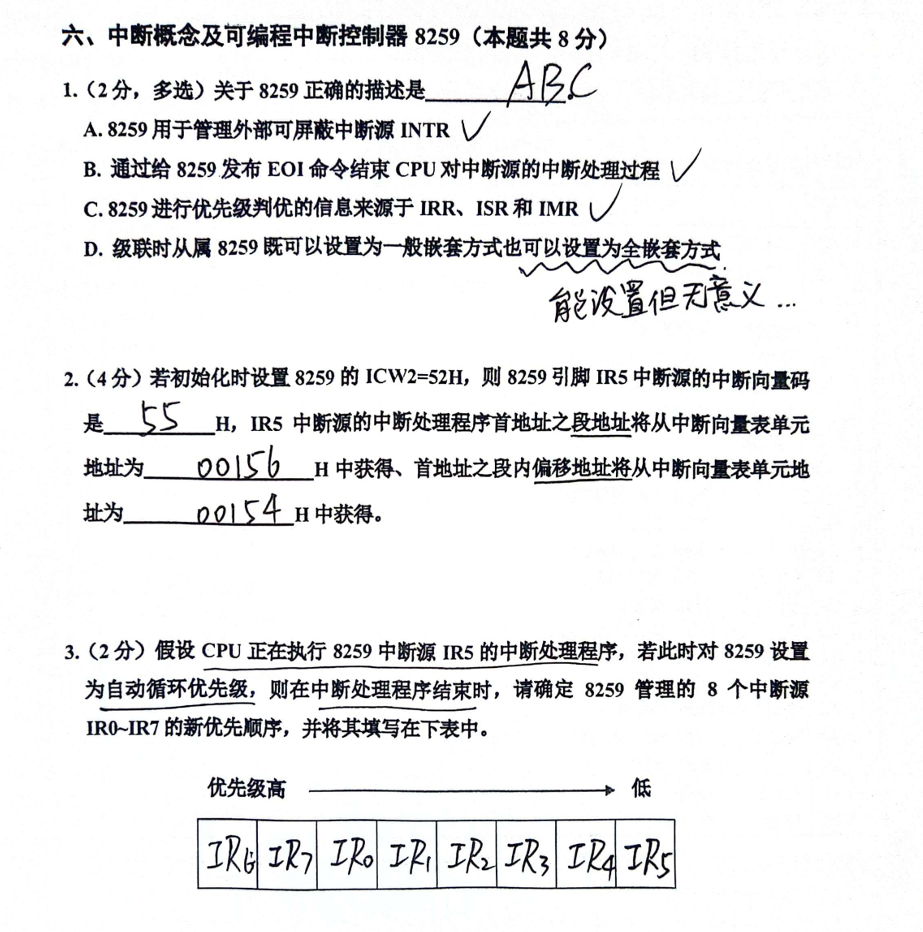 六、中断概念及可编程中断控制器 8259（本题共 8 分）
1.（2 分，多选）关于 8259 正确的描述是 ABC
A. 8259 用于管理外部可屏蔽中断源 INTR ✓
B. 通过给 8259 发布 EOI 命令结束 CPU 对中断源的中断处理过程 ✓
C. 8259 进行优先级判优的信息来源于 IRR、ISR 和 IMR ✓
D. 级联时从属 8259 既可以设置为一般嵌套方式也可以设置为全嵌套方式
能设置但无意义...
2.（4 分）若初始化时设置 8259 的 ICW2=52H，则 8259 引脚 IR5 中断源的中断向量码
是 55 H，IR5 中断源的中断处理程序首地址之段地址将从中断向量表单元
地址为 00156 H 中获得、首地址之段内偏移地址将从中断向量表单元地
址为 00154 H 中获得。
3.（2 分）假设 CPU 正在执行 8259 中断源 IR5 的中断处理程序，若此时对 8259 设置
为自动循环优先级，则在中断处理程序结束时，请确定 8259 管理的 8 个中断源
IR0~IR7 的新优先顺序，并将其填写在下表中。
优先级高 → 低
IR6 IR7 IR0 IR1 IR2 IR3 IR4 IR5